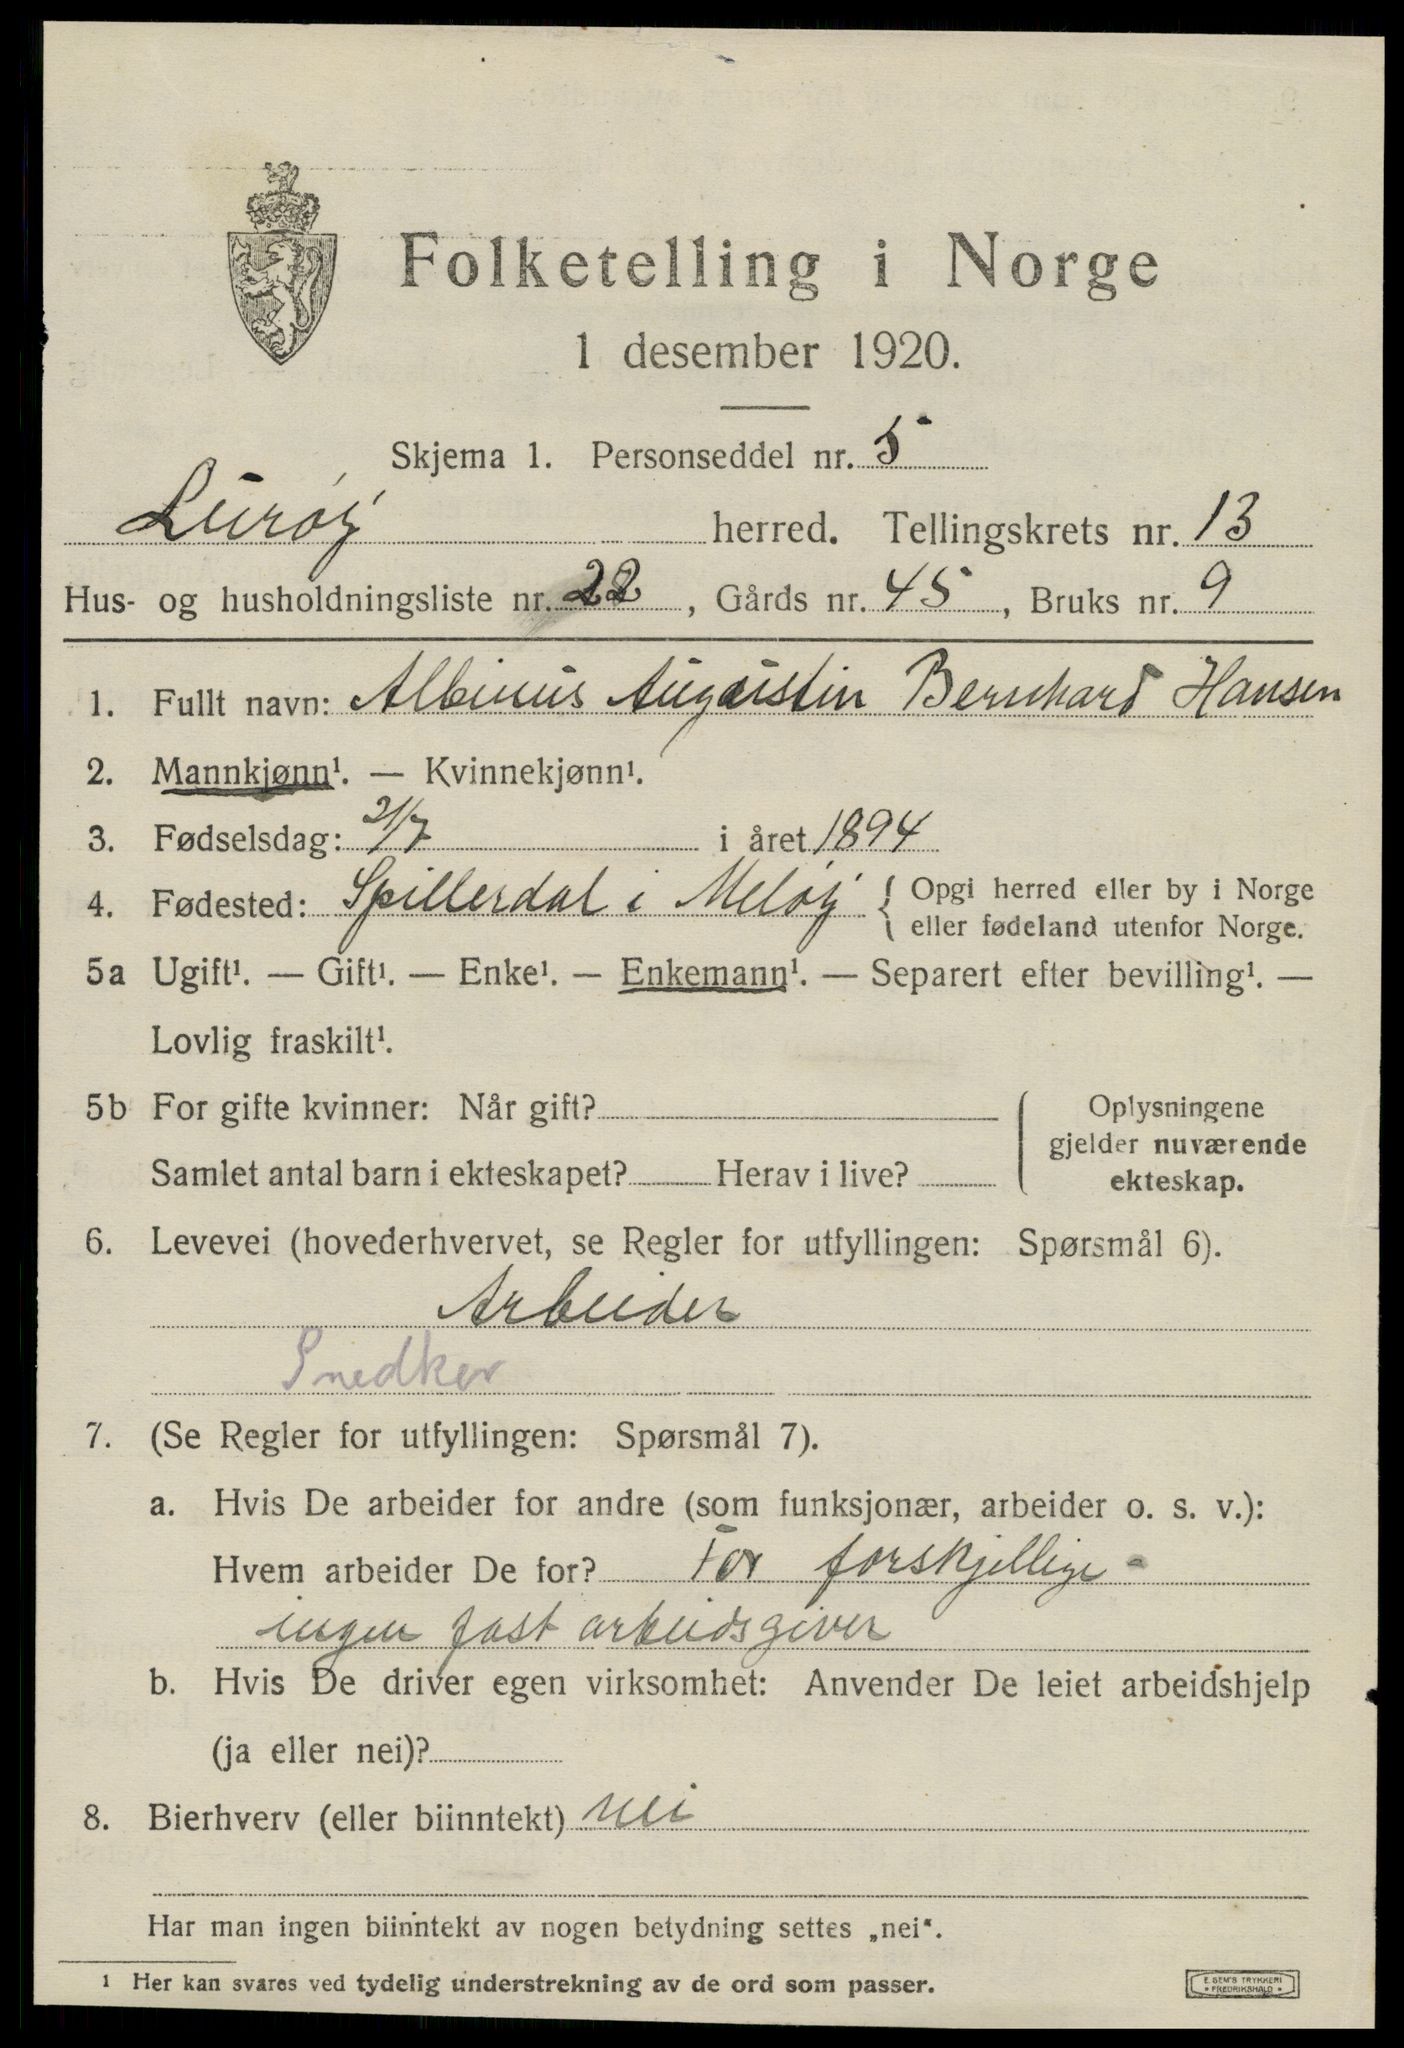 Folketelling i Norge
1 desember 1920.
Skjema 1. Personseddel nr. 5
Lurøy herred. Tellingskrets nr. 13
Hus- og husholdningsliste nr. 22, Gårds nr. 45, Bruks nr. 9
1. Fullt navn: Albinus Augustin Bernhard Hansen
2. Mannkjønn¹. — Kvinnekjønn¹.
3. Fødselsdag: 21/7 i året 1894
4. Fødested: Spillerdal i Meløy { Opgi herred eller by i Norge
eller fødeland utenfor Norge.
5a Ugift¹. — Gift¹. — Enke¹. — Enkemann¹. — Separert efter bevilling¹. —
Lovlig fraskilt¹.
5b For gifte kvinner: Når gift?
Samlet antal barn i ekteskapet? Herav i live?
Oplysningene
gjelder nuværende
ekteskap.
6. Levevei (hovederhvervet, se Regler for utfyllingen: Spørsmål 6).
Arbeider
Snedker
7. (Se Regler for utfyllingen: Spørsmål 7).
a. Hvis De arbeider for andre (som funksjonær, arbeider o. s. v.):
Hvem arbeider De for? For forskjellige -
ingen fast arbeidsgiver
b. Hvis De driver egen virksomhet: Anvender De leiet arbeidshjelp
(ja eller nei)?
8. Bierhverv (eller biinntekt) nei
Har man ingen biinntekt av nogen betydning settes „nei“.
1 Her kan svares ved tydelig understrekning av de ord som passer.
E. SEM'S TRYKKERI
• FREDRIKSHALD •